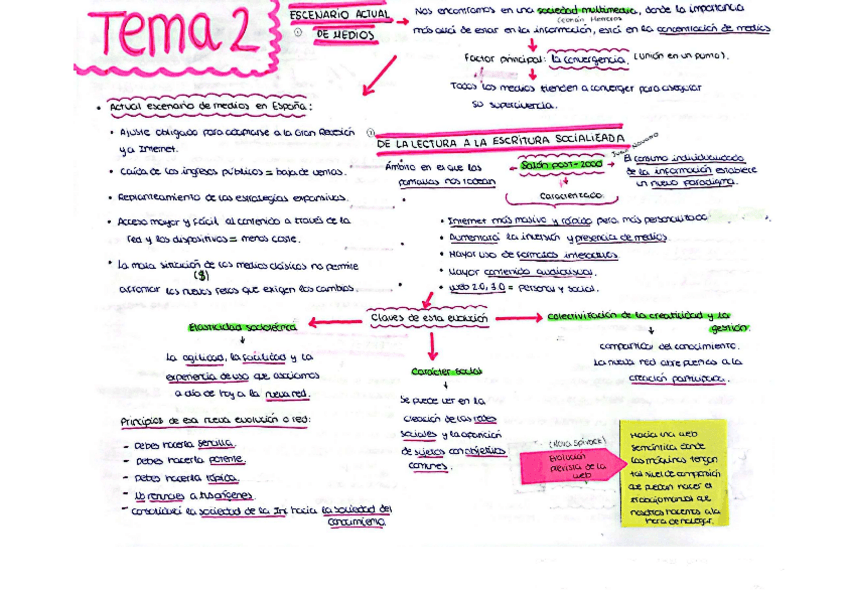 Tema 2
ESCENARIO ACTUAL
① DE MEDIOS
Nos encontramos en una sociedad multimedia, donde la importancia
más allá de estar en la información, está en la concentración de medios
Factor principal: la convergencia, (unión en un punto).
Todos los medios tienden a converger para asegurar
su supervivencia.
• Actual escenario de medios en España:
• Ajuste obligado para adaptarse a la Gran Recesión
y a Internet.
• Caída de los ingresos públicos = baja de ventas.
• Replanteamiento de las estrategias expansivas.
• Acceso mayor y fácil al contenido a través de la
red y los dispositivos = menos coste.
• La mala situación de los medios clásicos no permite
($)
afrontar los nuevos retos que exigen los cambios.
DE LA LECTURA A LA ESCRITURA SOCIALIZADA
Ámbito en el que las
pantallas nos rodean
Salón post-2000
El consumo individualizado
de la información establece
un nuevo paradigma.
Caracterizado:
• Internet más masivo y rápido pero más personalizado
• Aumentará la inversión y presencia de medios.
• Mayor uso de formatos interactivos
• Mayor contenido audiovisual.
• Web 2.0, 3.0 = personal y social.
Claves de esta evolución
Elasticidad sociotécnica
La agilidad, la facilidad y la
experiencia de uso que asociamos
a día de hoy a la nueva red.
Carácter social
Se puede ver en la
creación de las redes
sociales y la aparición
de sujetos con objetivos
comunes.
Colectivización de la creatividad y la
gestión.
compartición del conocimiento.
La nueva red abre puertas a la
creación participativa.
Principios de esa nueva evolución o red:
- Debes hacerla sencilla.
- Debes hacerla potente.
- Debes hacerla rápida.
- No renuncies a tus orígenes.
- Construirá la sociedad de la Inf hacia la sociedad del
conocimiento.
(Nova Spivack)
Evolución
prevista de la
web
Hacia una web
semántica donde
las máquinas tengan
tal nivel de comprensión
que puedan hacer el
trabajo manual que
nosotros hacemos a la
hora de navegar.